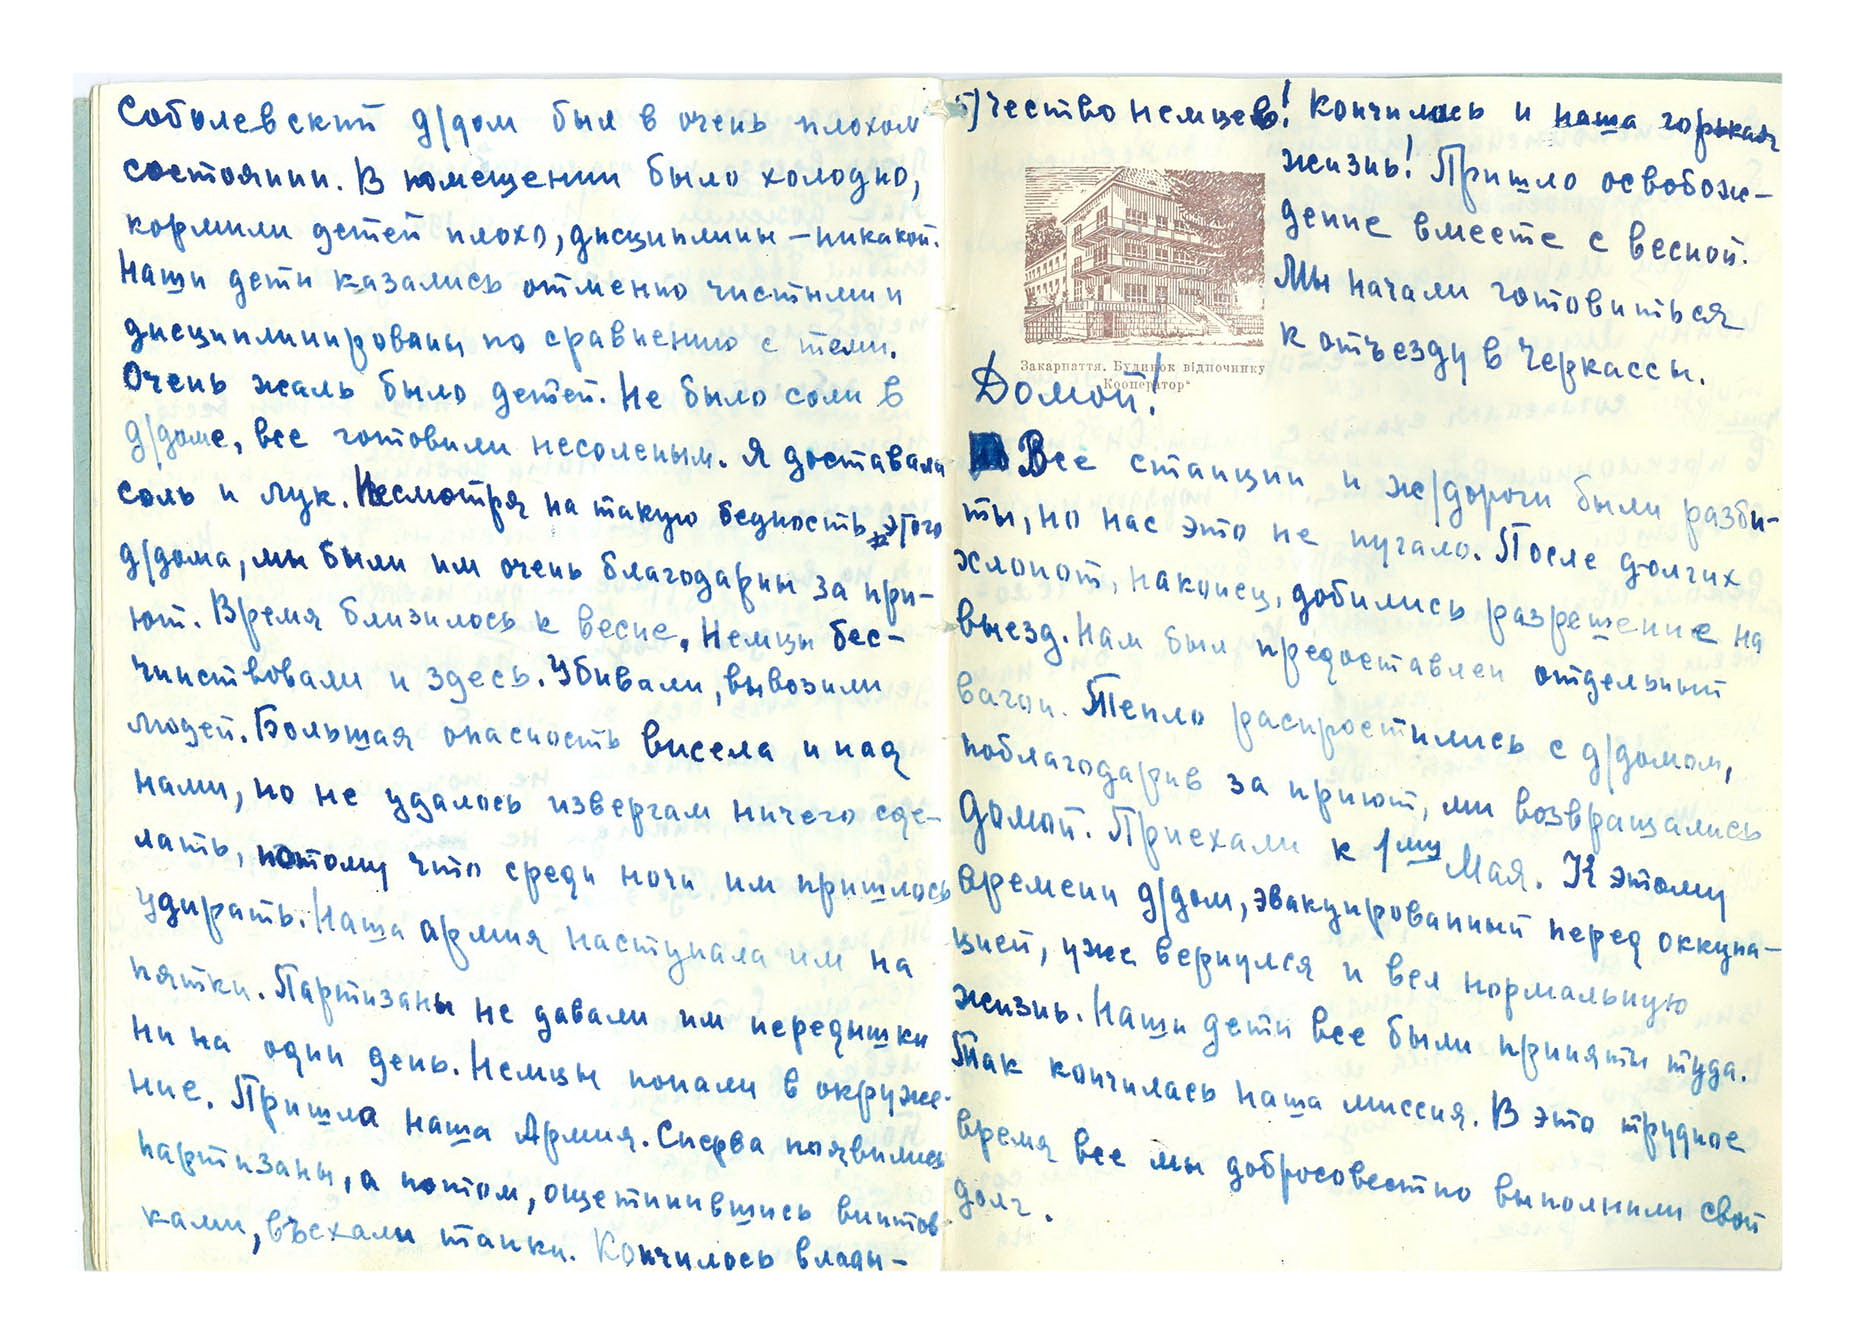 Соболевский д/дом был в очень плохом
состоянии. В помещении было холодно,
кормили детей плохо, дисциплины – никакой.
Наши дети казались отменно чистыми и
дисциплинированы по сравнению с теми.
Очень жаль было детей. Не было соли в
д/доме, все готовили несоленым. Я доставала
соль и лук. Несмотря на такую бедность этого
д/дома, мы были им очень благодарны за при-
ют. Время близилось к весне. Немцы бес-
чинствовали и здесь. Убивали, вывозили
людей. Большая опасность висела и над
нами, но не удалось извергам ничего сде-
лать, потому что среди ночи им пришлось
удирать. Наша армия наступала им на
пятки. Партизаны не давали им передышки
ни на один день. Немцы попали в окруже-
ние. Пришла наша Армия. Сперва появились
партизаны, а потом, ощетинившись винтов
ками, въехали танки. Кончилось влады-
5) чество немцев! Кончилась и наша горькая
жизнь! Пришло освобож-
дение вместе с весной.
Мы начали готовиться
к отъезду в Черкассы.
Закарпаття. Будинок відпочинку
„Кооператор“
Домой!
Все станции и ж/дороги были разби-
ты, но нас это не пугало. После долгих
хлопот, наконец, добились разрешение на
выезд. Нам был предоставлен отдельный
вагон. Тепло распростились с д/домом,
поблагодарив за приют, ми возвращались
домой. Приехали к 1му Мая. К этому
времени д/дом, эвакуированный перед оккупа-
цией, уже вернулся и вел нормальную
жизнь. Наши дети все были приняты туда.
Так кончилась наша миссия. В это трудное
время все мы добросовестно выполнили свой
долг.